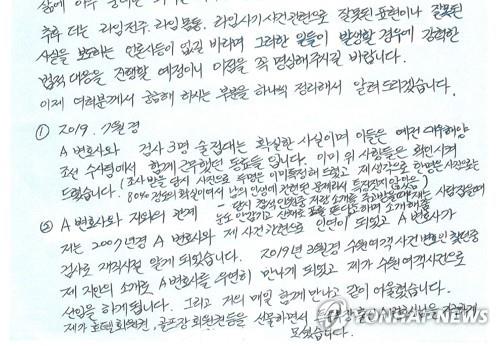 추후 다는 라임전주. 라임몸통. 라임사기사건관련으로 잘못된 표현이나 잘못된
사실을 보도하는 언론사들이 없길 바라며 그러한 일들이 발생할 경우에 강력한
법적 대응을 진행할 예정이니 이점을 꼭 명심해주시길 바랍니다.
이제 여러분께서 궁금해 하시는 부분을 하나씩 정리해서 알려드리겠습니다.
① 2019. 7월경
A 변호사와 검사 3명 술접대는 확실한 사실이며 이들은 예전 대우해양
조선 수사팀에서 함께 근무했던 동료들 입니다.
이미 위 사람들은 확인시켜
드렸습니다. (조사 받을 당시 사진으로 두명은 이미특정해 드렸고 제생각으로 한명은 사진으로
80% 정도의 확실이여서 남의 인생에 관련된 문제라서 특정짓지 않았음)
당시 참석 인원중
② A 변호사와 저와의 관계
저는 2007년경 A 변호사와 제 사건관련으로 인연이 되었고 A 변호사가
검사로 재직시절 알게 되었습니다. 2019년 3월경 수원여객사건 변호인 찾던중
제 지인의 소개로 A변호사를 우연히 만나게 되었고 제가 수원여객사건으로
선임을 하게 됩니다. 그리고 거의 매일 함께 만나고 같이 어울렸습니다.
제가 호텔회원권, 골프장 회원권등을 선물하면서
못했습니다.
YONHAPNEWS